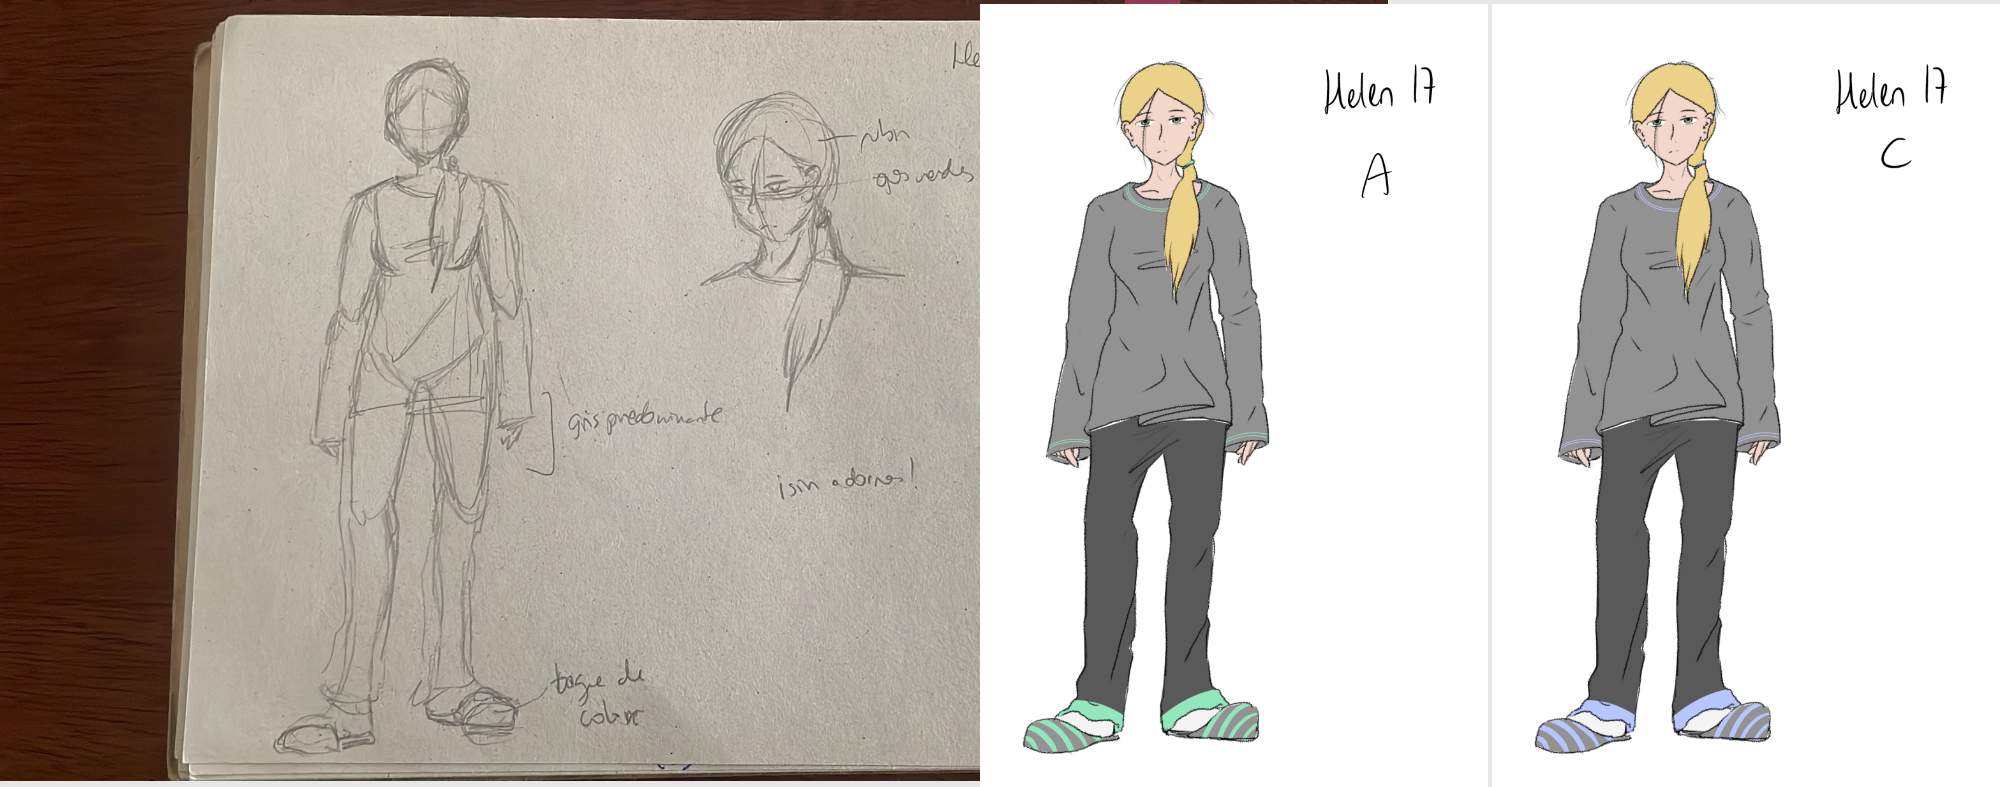 He
rubn
ojos verdes
gris predominante
¡sin adornos!
toque de
color
Helen 17
A
Helen 17
C